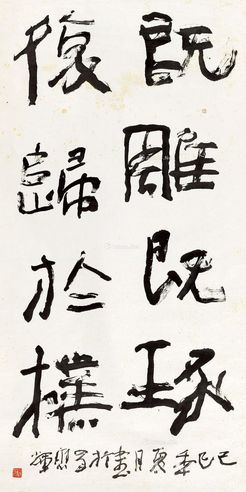 既雕既琢
復歸於樸
己巳季夏月書於